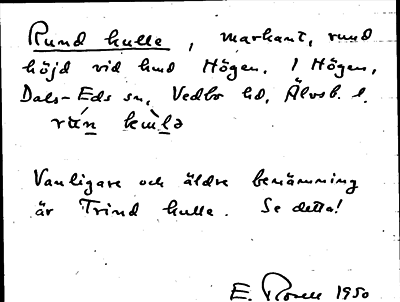 Rund kulle, markant, rund
höjd vid hmd Högen. I Högen,
Dals-Eds sn, Vedbo hd, Älvsb. l.
Vanligare och äldre benämning
är Trind kulle. Se detta!
E. Rosell 1950